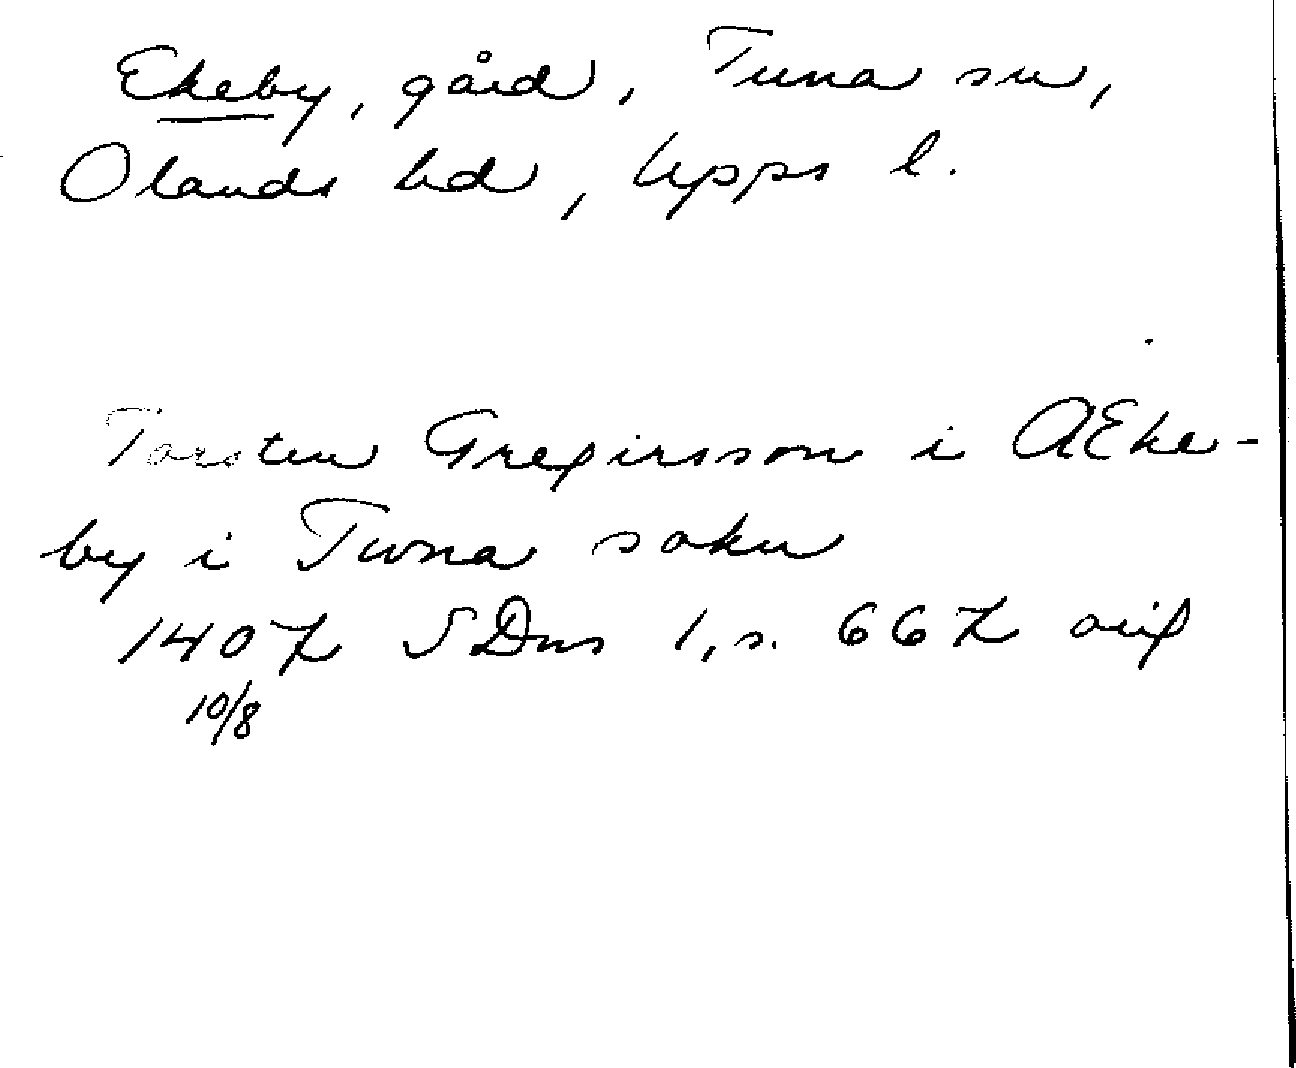 Ekeby, gård, Tuna sn,
Olands hd, Upps l.
Torsten Gregirsson i AEke-
by i Twna sokn
1407 SDns 1, s. 667 orig
10/8